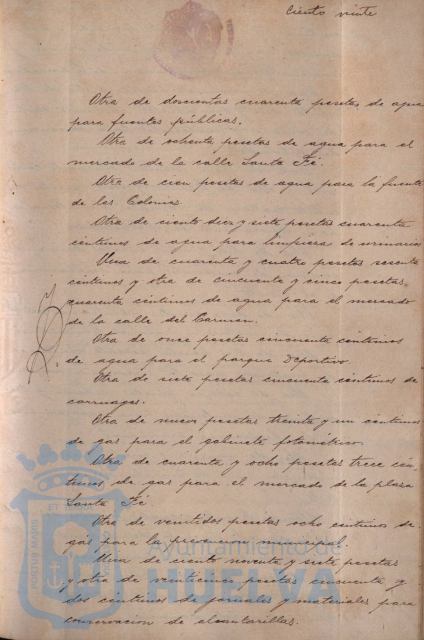 Ciento veinte
Otra de doscientas cuarenta pesetas de agua
para fuentes públicas.
Otra de ochenta pesetas de agua para el
mercado de la calle Santa Fé.
Otra de cien pesetas de agua para la fuente
de las Colonias
Otra de ciento diez y siete pesetas cuarenta
céntimos de agua para limpieza de urinarios
Una de cuarenta y cuatro pesetas sesenta
céntimos y otra de cincuenta y cinco pesetas
cuarenta céntimos de agua para el mercado
de la calle del Carmen.
Otra de once pesetas cincuenta céntimos
de agua para el parque deportivo
Otra de siete pesetas cincuenta céntimos de
carruages.
Otra de nueve pesetas treinta y un céntimos
de gas para el gabinete fotométrico.
Otra de cuarenta y ocho pesetas trece cén-
timos de gas para el mercado de la plaza
Santa Fé
Otra de veintidos pesetas ocho céntimos de
gas para la prevención municipal.
Una de ciento noventa y siete pesetas
y otra de veinticinco pesetas cincuenta y
dos céntimos de jornales y materiales para
conservación de alcantarillas.
Ayuntamiento de
HUELVA
PORTUS MARIS